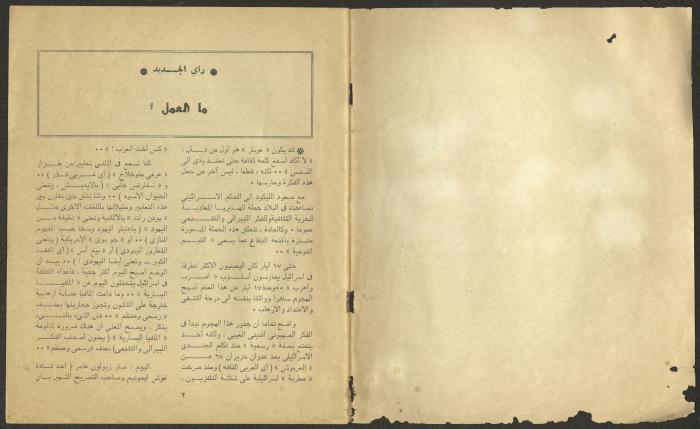 ● رأي الجديد ●
ما العمل ؟
✽ قد يكون « غوبلز » هو أول من قال :
« لا أكاد أسمع كلمة ثقافة حتى تمتد يدي الى
المسدس » ٠٠ لكنه ، قطعا ، ليس آخر من حمل
هذه الفكرة ومارسها ٠
مع صعود الليكود الى الحكم الاسرائيلي
تصاعدت في البلاد حملة الهستيريا المعادية
للحرية الثقافية وللفكر الليبرالي والتقدمي
عموما ٠ وكالعادة ، تنطلق هذه الحملة المسعورة
متسترة بأقنعة الدفاع عما يسمى « القيم
القومية » ٠٠
حتى ١٧ أيار كان اليمينيون الاكثر تطرفا
في اسرائيل يمارسون أسلوب « اضرب
واهرب » ٠٠ ومنذ ١٧ أيار من هذا العام أصبح
الهجوم سافرا وواثقا بنفسه الى درجة التشفي
والاعتداد والارهاب ٠
واضح تماما ان جذور هذا الهجوم تبدأ في
الفكر الصهيوني الديني الغيبي ، ولكنه أخذ
يتمتع بصفة « رسمية » منذ تكلم الجندي
الاسرائيلي بعد عدوان حزيران ٦٧ عن
« العربوش » ( أي العربي التافه ) ومنذ صرخت
« مطربة » اسرائيلية على شاشة التلفزيون ،
« كس أخت العرب ! » ٠٠
كنا نسمع في الماضي تعابير من طراز
« عرفي ملوخلاخ » ( أي عربي قذر ) ٠٠
و « شفارتس حايي » ( بالايديش ، وتعني
الحيوان الاسود ) ٠٠ وكنا نقلق حين نقارن بين
هذه التعابير ومثيلاتها باللغات الاخرى مثل
« يودن رأت » بالالمانية وتعني « نظيفة من
اليهود » ( باعتبار اليهود وسخا حسب المفهوم
النازي ) ٠٠ أو « جو بوي » الامريكية ( وتعني
اليهودي ) أو « بيغ نوز » ( أي الانف
الكبير ــ وتعني أيضا اليهودي ! ) ٠٠ بيد ان
الوضع أصبح اليوم أكثر جدية ، فأعداء الثقافة
في اسرائيل يتحدثون اليوم عن « المافيا
اليسارية » ٠٠ وما دامت المافيا عصابة ارهابية
خارجة على القانون وتجوز محاربتها بعنف
« رسمي ومنظم » ٠٠ فان الشيء بالشيء
يذكر ، ويصبح المعنى ان هناك ضرورة لمقاومة
« المافيا اليسارية » ( يعنون أصحاب الفكر
الليبرالي والتقدمي ) بعنف «رسمي ومنظم» ٠٠
اليوم : صار زبولون هامر ( أحد قادة
غوش ايمونيم وصاحب التصريح الشهير بان
٢